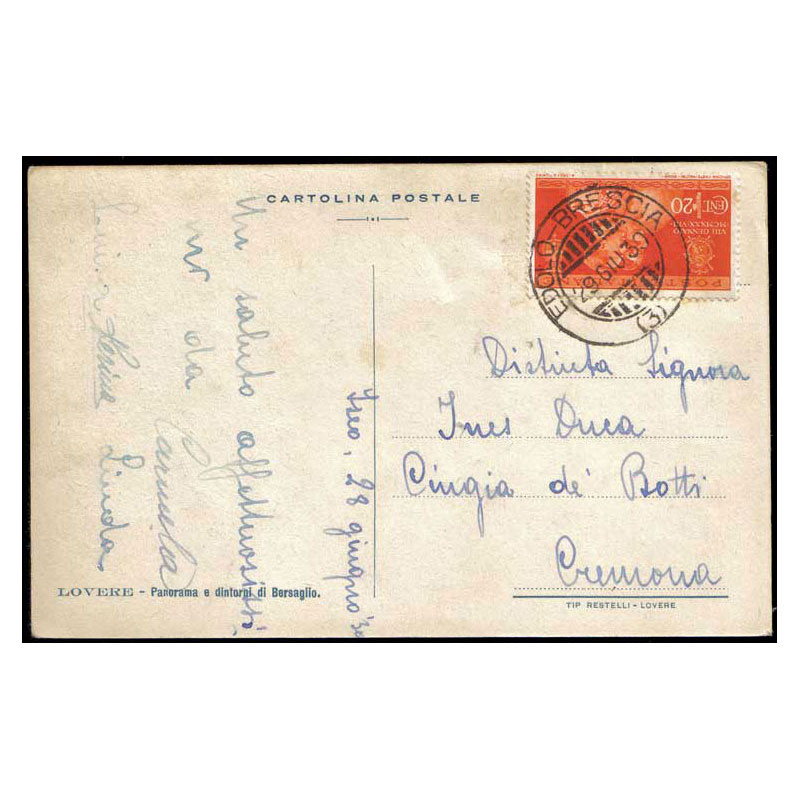 CARTOLINA POSTALE
EDOLO-BRESCIA
29 GIU 30
(3)
CENT. 20
VIII GENNAIO
MCMXXX-VIII
Un saluto affettuosissi
mo da
Carmela
Linda
Iseo, 28 giugno '30
Distinta Signora
Ines Duca
Cingia de' Botti
Cremona
LOVERE - Panorama e dintorni di Bersaglio.
TIP RESTELLI - LOVERE